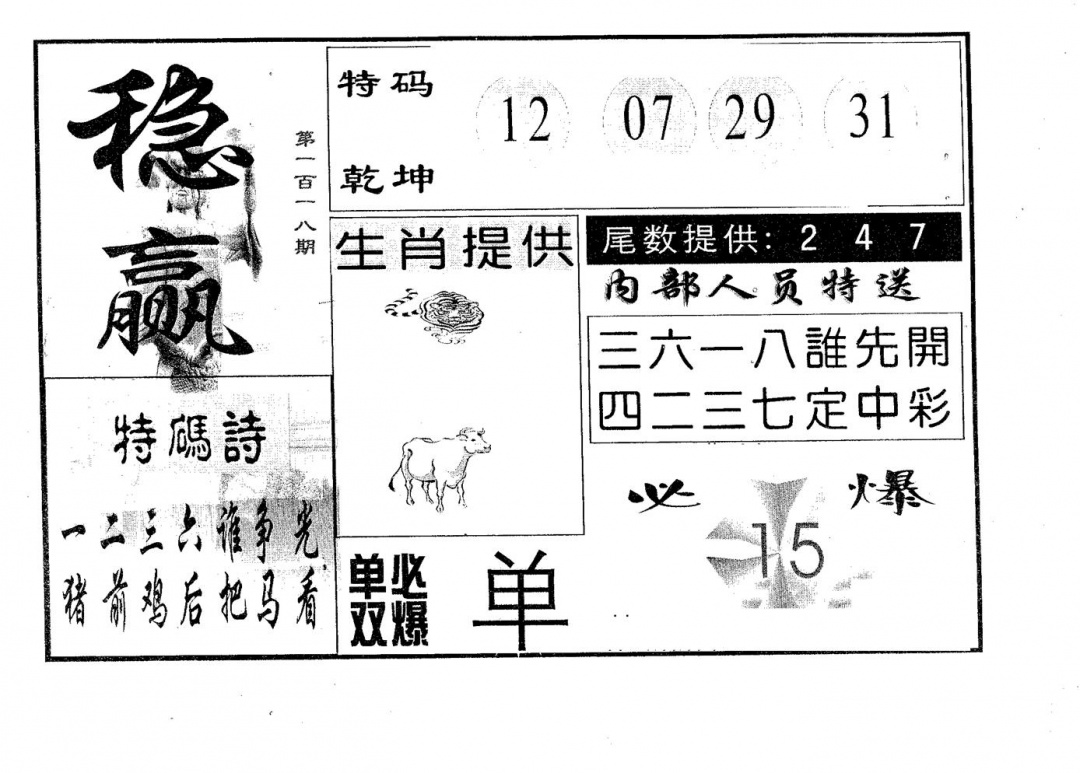 稳
赢
第一百一八期
特码
乾坤
12 07 29 31
生肖提供
尾数提供: 2 4 7
内部人员特送
三六一八誰先開
四二三七定中彩
特碼詩
一二三六谁争光
猪前鸡后把马看
必爆
15
单双
必爆
单